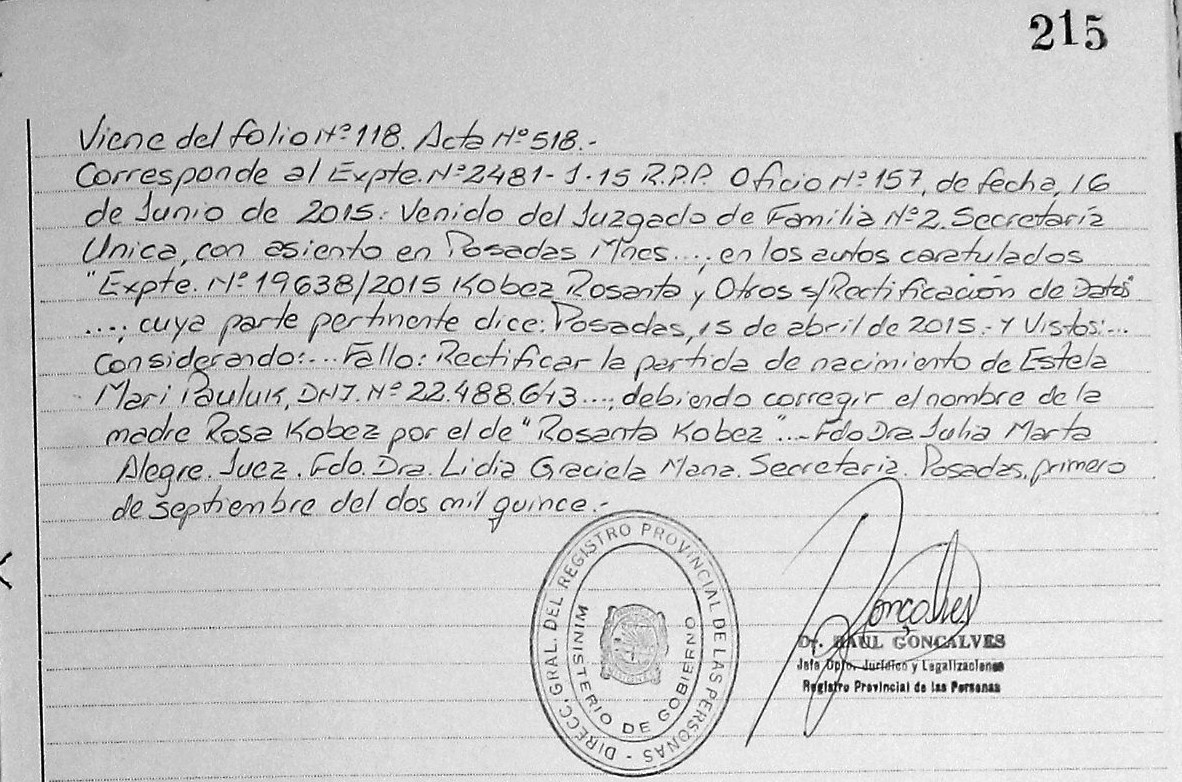 215
Viene del folio Nº 118. Acta Nº 518.-
Corresponde al Expte. Nº 2481-J-15 R.P.P. Oficio Nº 157, de fecha, 16
de Junio de 2015. Venido del Juzgado de Familia Nº 2. Secretaría
Unica, con asiento en Posadas Mnes...; en los autos caratulados
"Expte. Nº 19638/2015 Kobez Rosanta y Otros s/Rectificación de Datos"
....; cuya parte pertinente dice: Posadas, 15 de abril de 2015.- Y Vistos:...
Considerando:... Fallo: Rectificar la partida de nacimiento de Estela
Mari Pauluk, DNI. Nº 22.488.643...; debiendo corregir el nombre de la
madre Rosa Kobez por el de "Rosanta Kobez"...- Fdo Dra Julia Marta
Alegre. Juez. Fdo. Dra. Lidia Graciela Mana. Secretaria. Posadas, primero
de septiembre del dos mil quince.-
DIRECC. GRAL. DEL REGISTRO PROVINCIAL DE LAS PERSONAS -
MINISTERIO DE GOBIERNO
Gonçalves
Dr. RAUL GONCALVES
Jefe Dpto. Jurídico y Legalizaciones
Registro Provincial de las Personas